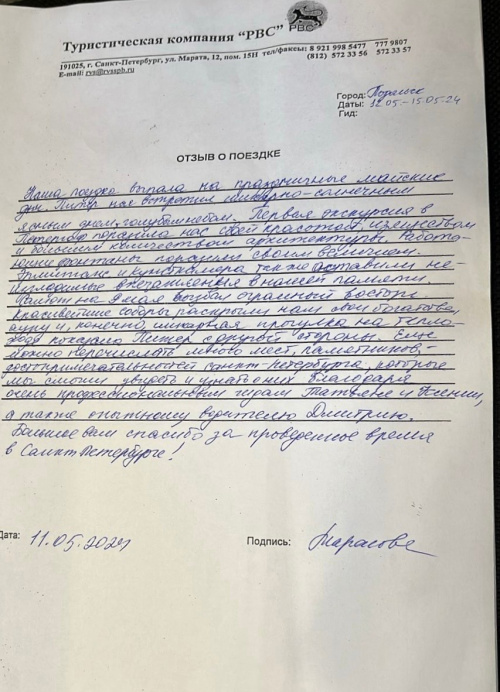 Туристическая компания “РВС”
РВС
191025, г. Санкт-Петербург, ул. Марата, 12, пом. 15Н тел/факсы: 8 921 998 5477 777 9807
E-mail: rvs@rvsspb.ru (812) 572 33 56 572 33 57
Город: Подольск
Даты: 12.05.-15.05.24
Гид:
ОТЗЫВ О ПОЕЗДКЕ
Наша поездка выпала на праздничные майские
дни. Питер нас встретил солнечным
ясным днем, голубым небом. Первая экскурсия в
Петергоф поразила нас своей красотой, изяществом
и большим количеством архитектуры. Работа-
ющие фонтаны поразили своим величием.
Эрмитаж и кунсткамера также оставили не-
изгладимые впечатления в нашей памяти.
на 9 мая вызвал огромный восторг
красивейшие соборы раскрыли нам свои богатства,
и, конечно, шикарная прогулка на тепло-
ходе показала Питер с другой стороны. Еще
можно перечислять много мест, памятников,
достопримечательностей Санкт-Петербурга, которые
мы смогли увидеть и узнать о них благодаря
очень профессиональным гидам Татьяне и Ксении,
а также опытному водителю Дмитрию.
Большое вам спасибо за проведенное время
в Санкт Петербурге!
Дата: 11.05.2024 Подпись: Тарасова